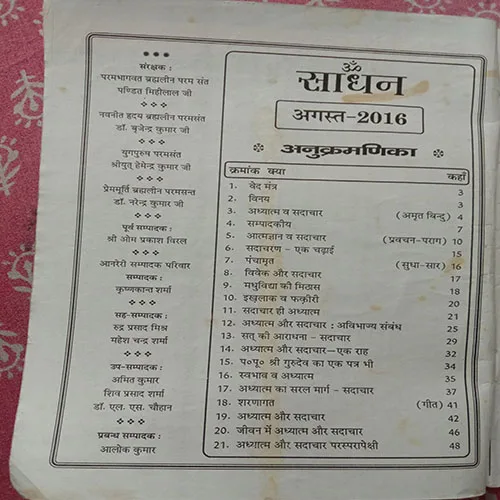 संरक्षक :
परमभागवत ब्रह्मलीन परम संत
पण्डित मिहीलाल जी
नवनीत हृदय ब्रह्मलीन परमसंत
डॉ. बृजेन्द्र कुमार जी
युगपुरुष परमसंत
श्रीयुत् हेमेन्द्र कुमार जी
प्रेममूर्ति ब्रह्मलीन परमसन्त
डॉ. नरेन्द्र कुमार जी
पूर्व सम्पादक :
श्री ओम प्रकाश विरल
आनरेरी सम्पादक परिवार
सम्पादक :
कृष्णकान्त शर्मा
सह-सम्पादक :
रुद्र प्रसाद मिश्र
महेश चन्द्र शर्मा
उप-सम्पादक :
अमित कुमार
शिव प्रसाद शर्मा
डॉ. एल. एस. चौहान
प्रबन्ध सम्पादक :
आलोक कुमार
ॐ
साधन
अगस्त-2016
अनुक्रमणिका
क्रमांक क्या कहाँ
1. वेद मंत्र 3
2. विनय 3
3. अध्यात्म व सदाचार (अमृत बिन्दु) 4
4. सम्पादकीय 7
5. आत्मज्ञान व सदाचार (प्रवचन-पराग) 10
6. सदाचरण - एक चढ़ाई 15
7. पंचामृत (सुधा-सार) 16
8. विवेक और सदाचार 17
9. मधुविद्या की मिठास 18
10. इख़्लाक़ व फक़ीरी 20
11. सदाचार ही अध्यात्म 21
12. अध्यात्म और सदाचार : अविभाज्य संबंध 25
13. सत् की आराधना - सदाचार 29
14. अध्यात्म और सदाचार—एक राह 32
15. प०पू० श्री गुरुदेव का एक पत्र भी 34
16. स्वभाव व अध्यात्म 35
17. अध्यात्म का सरल मार्ग - सदाचार 37
18. शरणागत (गीत) 41
19. अध्यात्म और सदाचार 42
20. जीवन में अध्यात्म और सदाचार 46
21. अध्यात्म और सदाचार परस्परापेक्षी 48